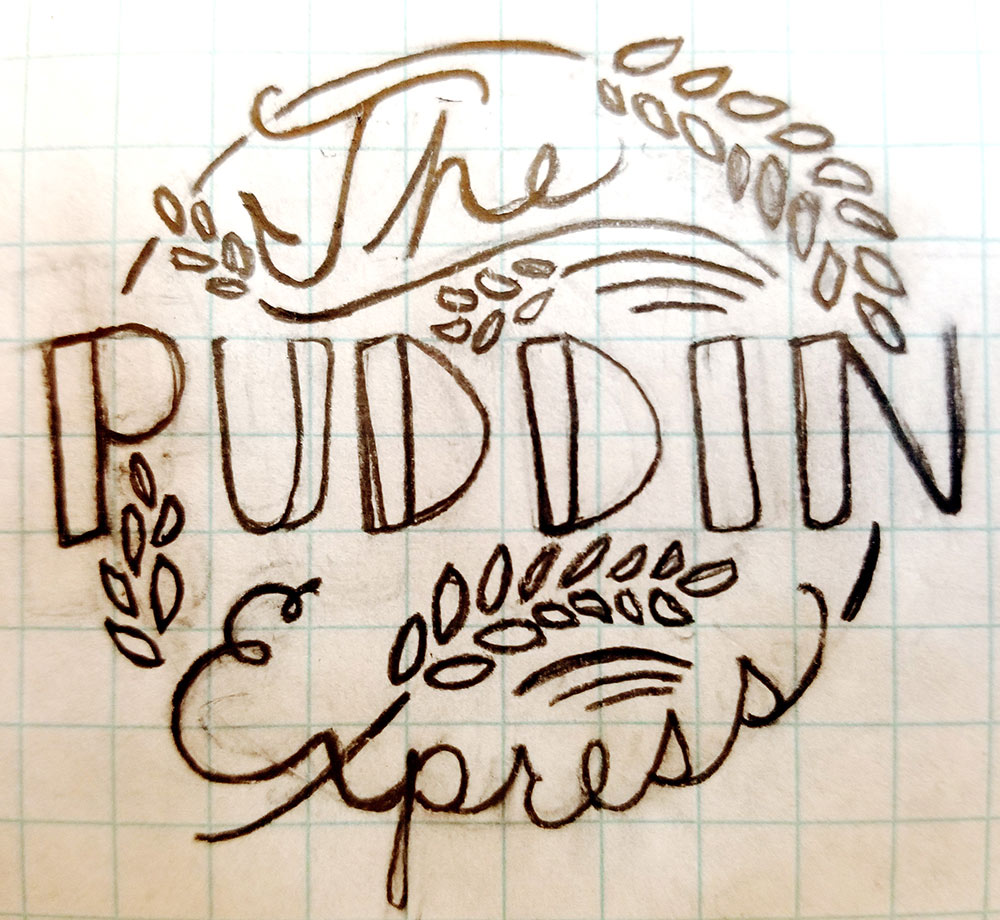 The
PUDDIN
Express